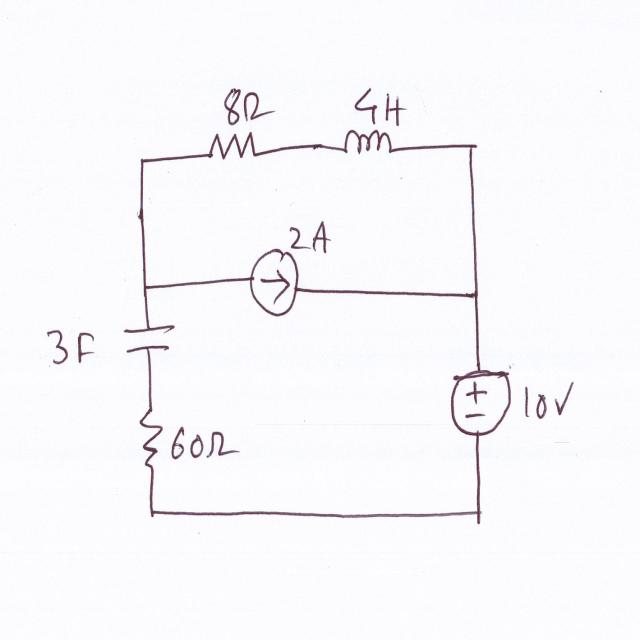 8Ω
4H
2A
3F
+
-
10V
60Ω